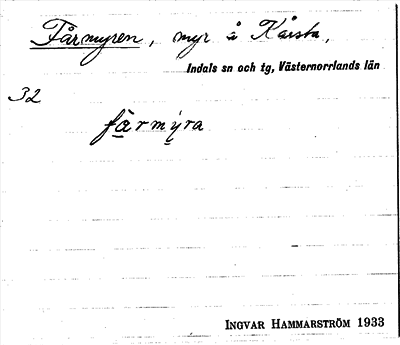 Fårmyren, myr å Kårsta,
Indals sn och tg, Västernorrlands län
32
få̀rmy̓ra
INGVAR HAMMARSTRÖM 1933